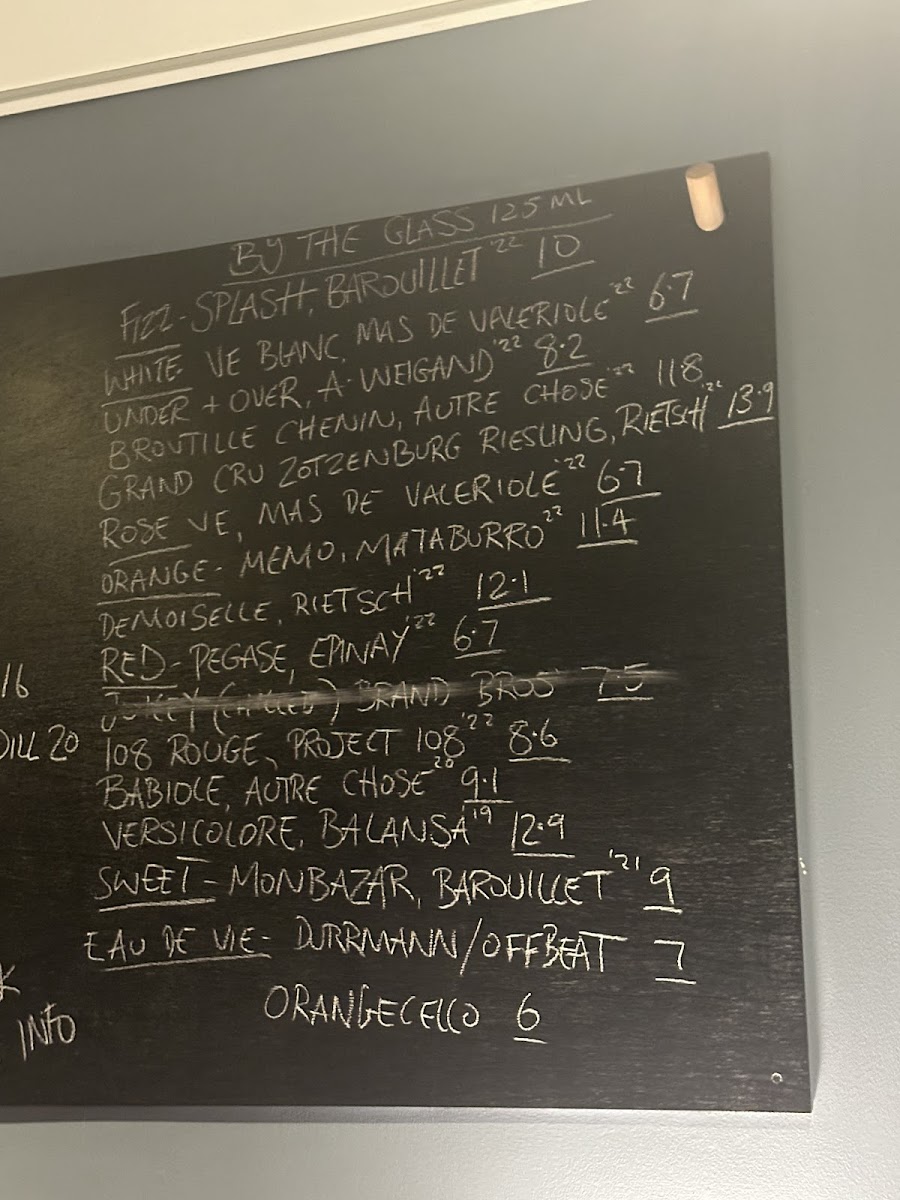 BY THE GLASS 125ML
FIZZ - SPLASH, BAROUILLET '22 10
WHITE VE BLANC, MAS DE VALERIOLE '22 6.7
UNDER + OVER, A. WEIGAND '22 8.2
BROUTILLE CHENIN, AUTRE CHOSE '22 11.8
GRAND CRU ZOTZENBURG RIESLING, RIETSCH '22 13.9
ROSE VE, MAS DE VALERIOLE '22 6.7
ORANGE - MEMO, MATABURRO '22 11.4
DEMOISELLE, RIETSCH '22 12.1
RED - PEGASE, EPINAY '22 6.7
BRAND BROS 7.5
16
108 ROUGE, PROJECT 108 '22 8.6
DILL 20
BABIOLE, AUTRE CHOSE '20 9.1
VERSICOLORE, BALANSA '19 12.9
SWEET - MONBAZAR, BAROUILLET '21 9
EAU DE VIE - DURRMANN/OFFBEAT 7
ORANGECELLO 6
INFO